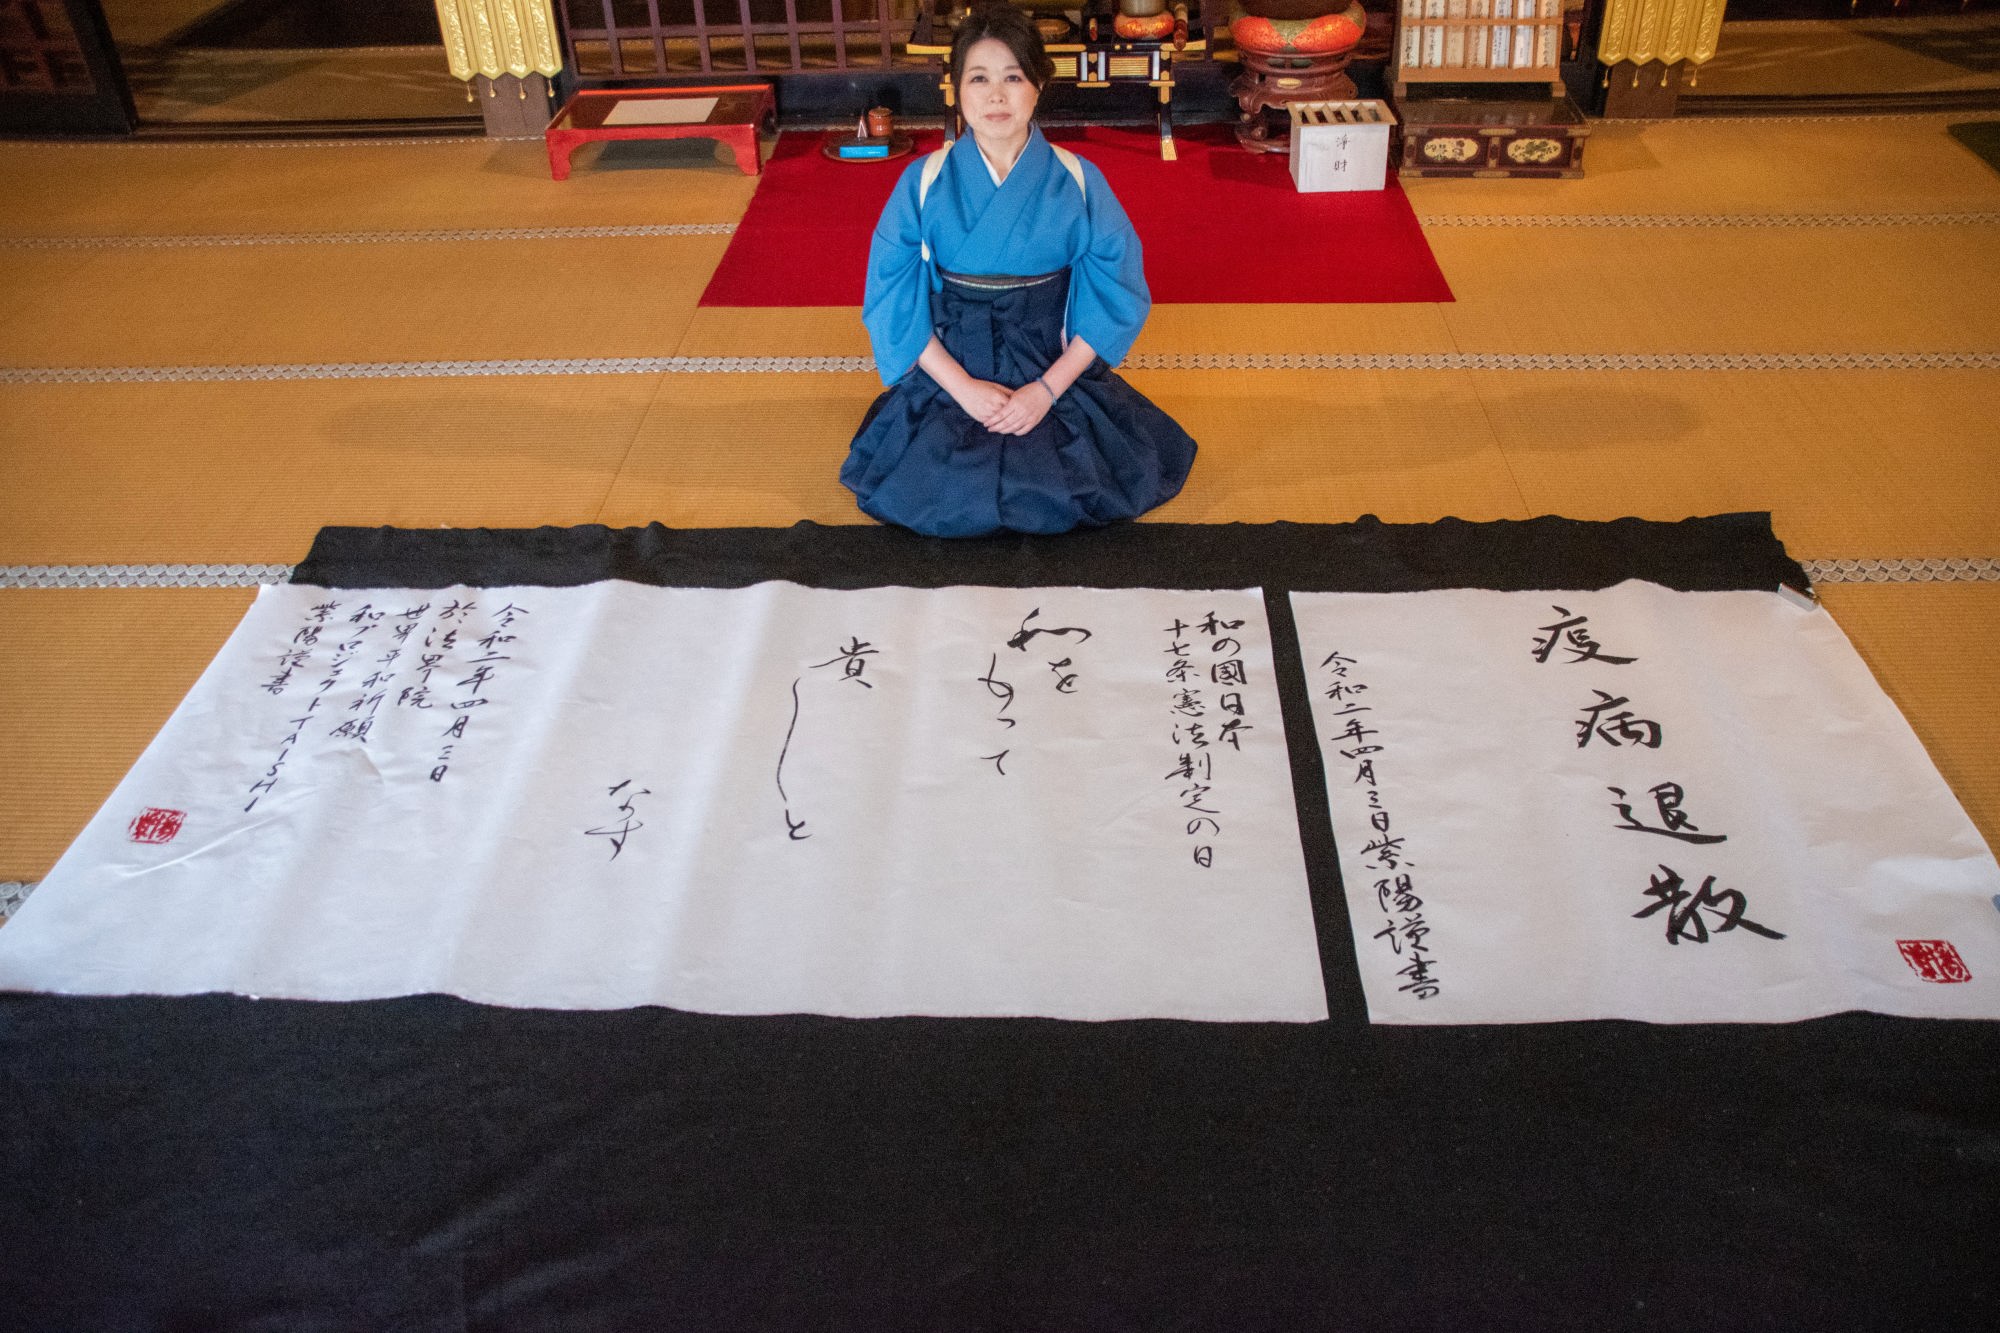 疫病退散
令和二年四月三日紫陽謹書
和の國日本
十七条憲法制定の日
和を
もって
貴しと
なす
令和二年四月三日
於法界院
世界平和祈願
和プロジェクトTAISHI
紫陽謹書
浄財